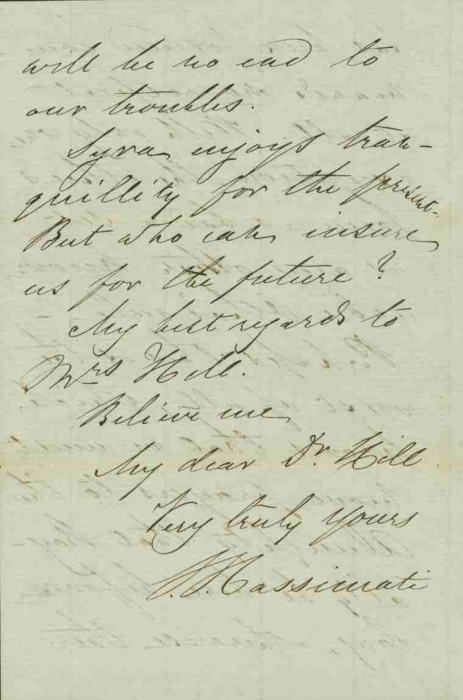 will be no end to
our troubles.
Syra enjoys tran-
quillity for the present.
But who can insure
us for the future?
My best regards to
Mrs Hill.
Believe me
My dear Dr. Hill
Very truly yours